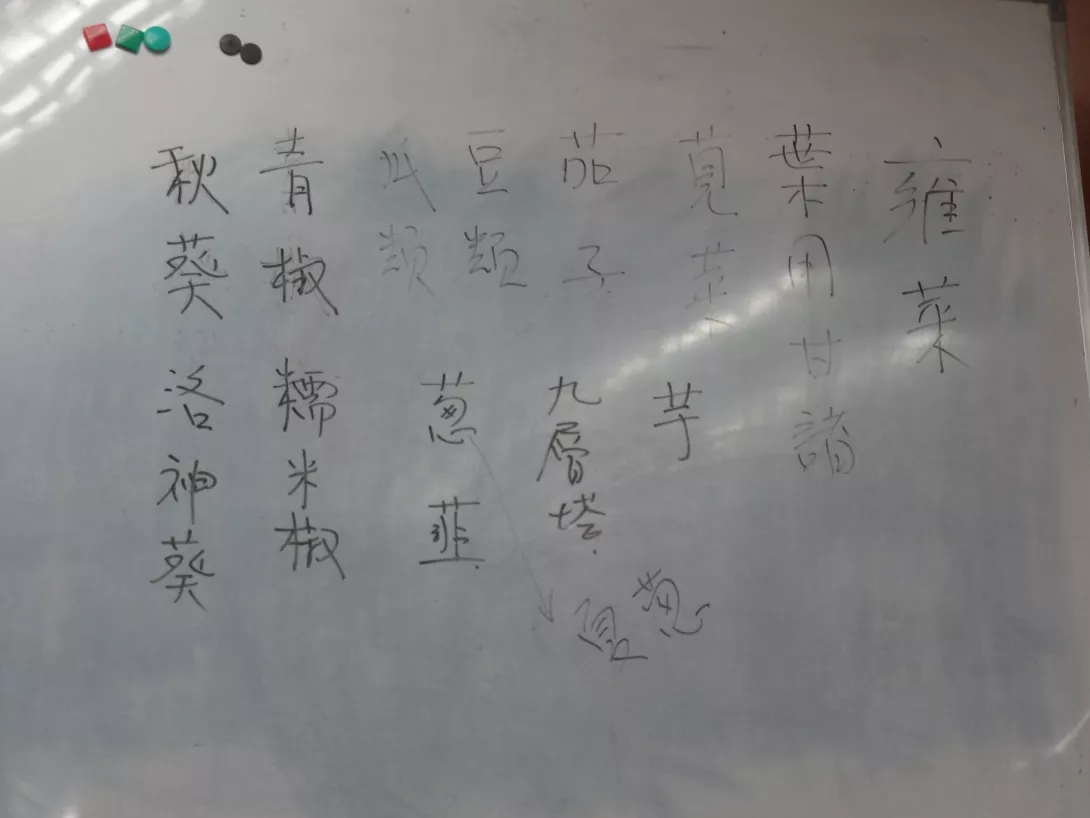 雍菜
葉用甘諸
莧菜
芋
茄子
九層塔
豆類
瓜類
葱
韮
青椒
糯米椒
秋葵
洛神葵
葱